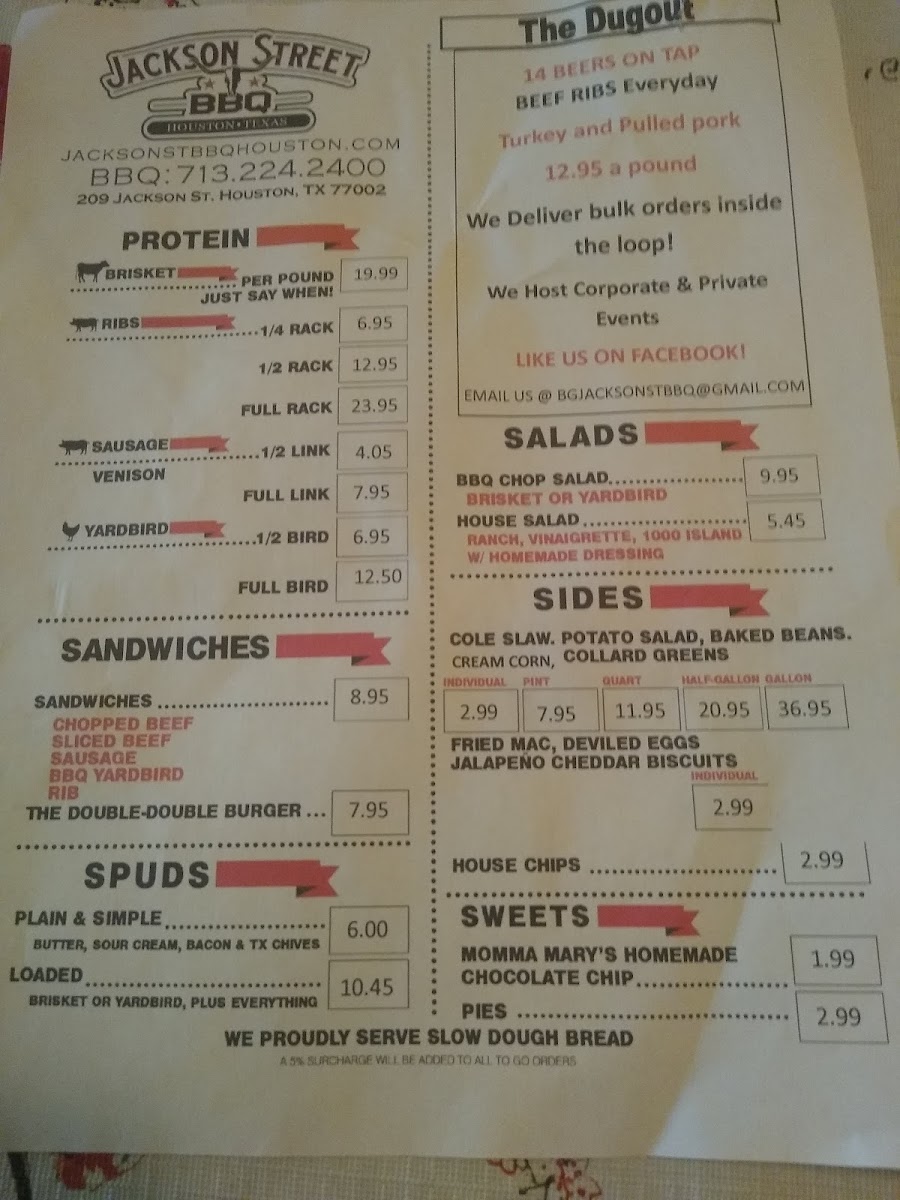 JACKSON STREET
BBQ
HOUSTON • TEXAS
JACKSONSTBBQHOUSTON.COM
BBQ: 713.224.2400
209 JACKSON ST. HOUSTON, TX 77002
PROTEIN
BRISKET PER POUND 19.99
JUST SAY WHEN!
RIBS 1/4 RACK 6.95
1/2 RACK 12.95
FULL RACK 23.95
SAUSAGE 1/2 LINK 4.05
VENISON
FULL LINK 7.95
YARDBIRD 1/2 BIRD 6.95
FULL BIRD 12.50
SANDWICHES
SANDWICHES 8.95
CHOPPED BEEF
SLICED BEEF
SAUSAGE
BBQ YARDBIRD
RIB
THE DOUBLE-DOUBLE BURGER ... 7.95
SPUDS
PLAIN & SIMPLE 6.00
BUTTER, SOUR CREAM, BACON & TX CHIVES
LOADED 10.45
BRISKET OR YARDBIRD, PLUS EVERYTHING
The Dugout
14 BEERS ON TAP
BEEF RIBS Everyday
Turkey and Pulled pork
12.95 a pound
We Deliver bulk orders inside
the loop!
We Host Corporate & Private
Events
LIKE US ON FACEBOOK!
EMAIL US @ BGJACKSONSTBBQ@GMAIL.COM
SALADS
BBQ CHOP SALAD 9.95
BRISKET OR YARDBIRD
HOUSE SALAD 5.45
RANCH, VINAIGRETTE, 1000 ISLAND
W/ HOMEMADE DRESSING
SIDES
COLE SLAW. POTATO SALAD, BAKED BEANS.
CREAM CORN, COLLARD GREENS
INDIVIDUAL PINT QUART HALF-GALLON GALLON
2.99 7.95 11.95 20.95 36.95
FRIED MAC, DEVILED EGGS
JALAPEÑO CHEDDAR BISCUITS
INDIVIDUAL
2.99
HOUSE CHIPS 2.99
SWEETS
MOMMA MARY'S HOMEMADE
CHOCOLATE CHIP 1.99
PIES 2.99
WE PROUDLY SERVE SLOW DOUGH BREAD
A 5% SURCHARGE WILL BE ADDED TO ALL TO GO ORDERS